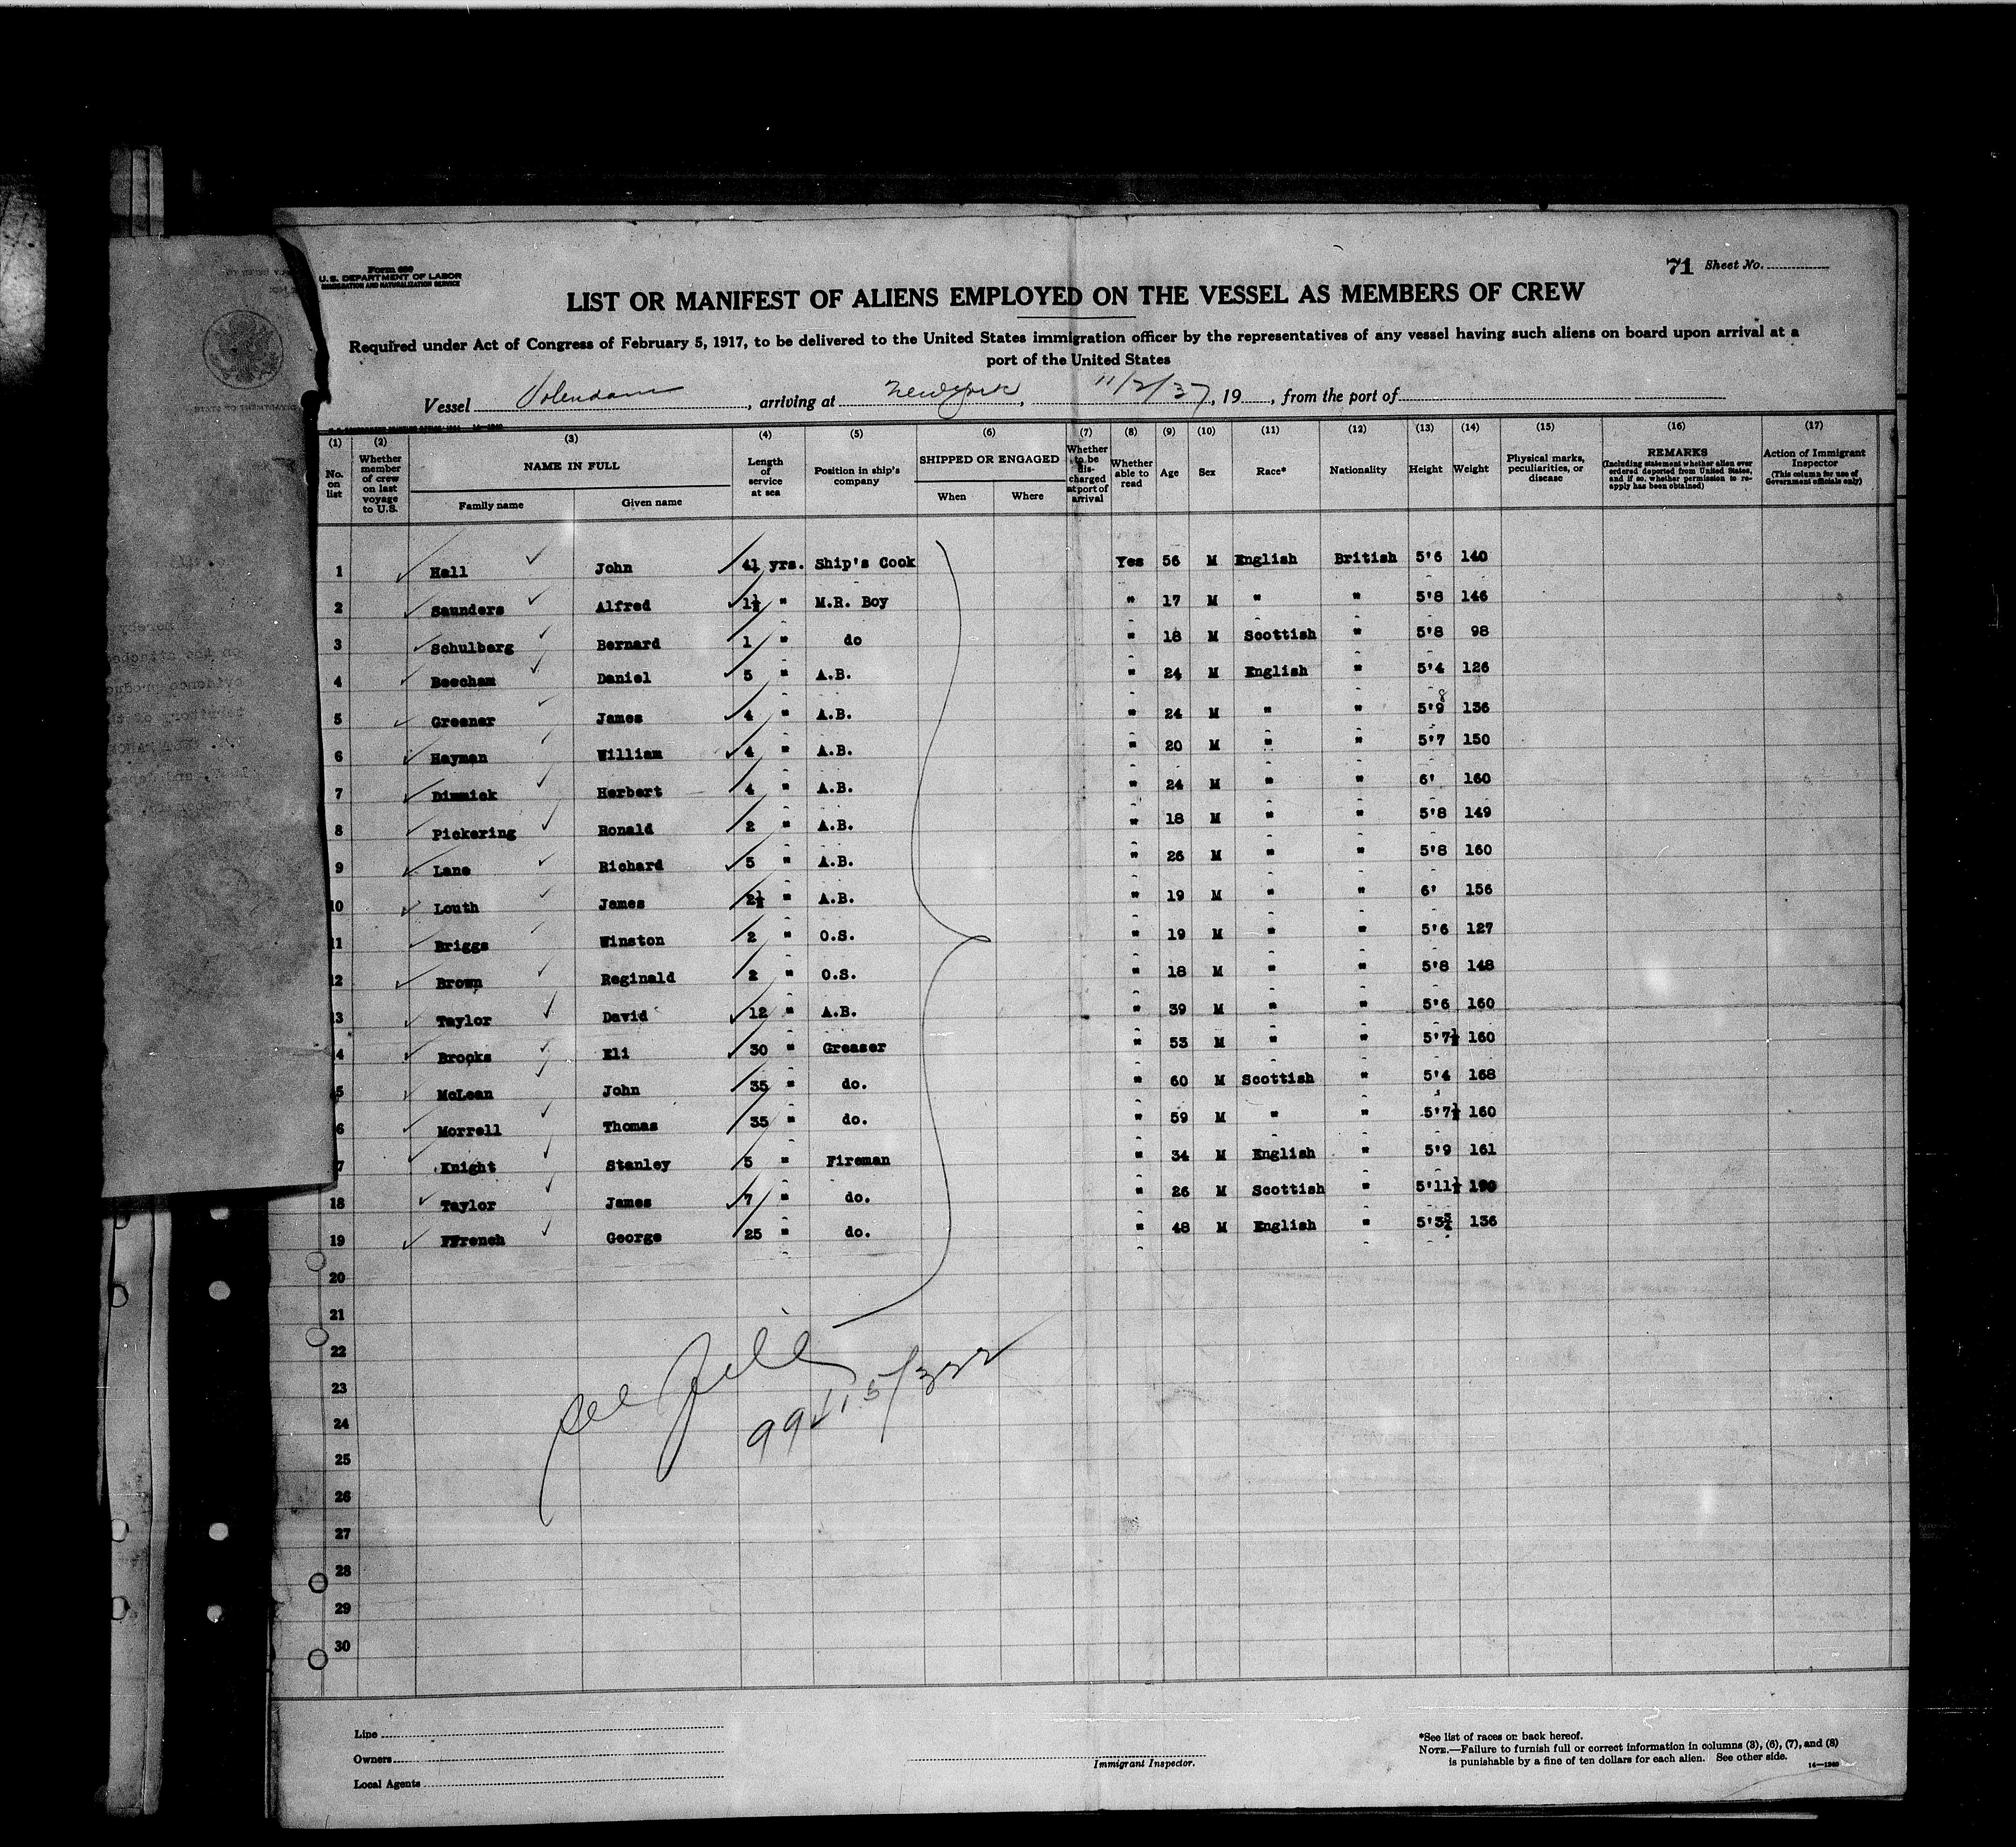 Form 680
U.S. DEPARTMENT OF LABOR
IMMIGRATION AND NATURALIZATION SERVICE
71 Sheet No.
LIST OR MANIFEST OF ALIENS EMPLOYED ON THE VESSEL AS MEMBERS OF CREW
Required under Act of Congress of February 5, 1917, to be delivered to the United States immigration officer by the representatives of any vessel having such aliens on board upon arrival at a
port of the United States
Vessel Volendam, arriving at New York, 11/2/37, 19, from the port of
(1) (2) (3) (4) (5) (6) (7) (8) (9) (10) (11) (12) (13) (14) (15) (16) (17)
No. on list
Whether member of crew on last voyage to U.S.
NAME IN FULL
Family name
Given name
Length of service at sea
Position in ship's company
SHIPPED OR ENGAGED
When
Where
Whether to be discharged at port of arrival
Whether able to read
Age
Sex
Race*
Nationality
Height
Weight
Physical marks, peculiarities, or disease
REMARKS
(Including statement whether alien ever ordered deported from United States, and if so, whether permission to reapply has been obtained)
Action of Immigrant Inspector
(This column for use of Government officials only)
1 Hall John yrs. Ship's Cook Yes 56 M English British 5'6 140
2 Saunders Alfred 1½ " M.R. Boy " 17 M " " 5'8 146
3 Schulberg Bernard 1 " do " 18 M Scottish " 5'8 98
4 Beecham Daniel 5 " A.B. " 24 M English " 5'4 126
5 Greener James 4 " A.B. " 24 M " " 5'9 136
6 Hayman William 4 " A.B. " 20 M " " 5'7 150
7 Dimmick Herbert 4 " A.B. " 24 M " " 6' 160
8 Pickering Ronald 2 " A.B. " 18 M " " 5'8 149
9 Lane Richard 5 " A.B. " 26 M " " 5'8 160
10 Louth James 2½ " A.B. " 19 M " " 6' 156
11 Briggs Winston 2 " O.S. " 19 M " " 5'6 127
12 Brown Reginald 2 " O.S. " 18 M " " 5'8 148
3 Taylor David 12 " A.B. " 39 M " " 5'6 160
4 Brooks Eli 30 " Greaser " 53 M " " 5'7½ 160
5 McLean John 35 " do. " 60 M Scottish " 5'4 168
6 Morrell Thomas 35 " do. " 59 M " " 5'7½ 160
7 Knight Stanley 5 " Fireman " 34 M English " 5'9 161
18 Taylor James 7 " do. " 26 M Scottish " 5'11½ 190
19 FFrench George 25 " do. " 48 M English " 5'3¾ 136
20
21
22
23
24
25
26
27
28
29
30
see file
Line
Owners
Local Agents
Immigrant Inspector.
*See list of races on back hereof.
NOTE.—Failure to furnish full or correct information in columns (3), (6), (7), and (8)
is punishable by a fine of ten dollars for each alien. See other side.
14—1240